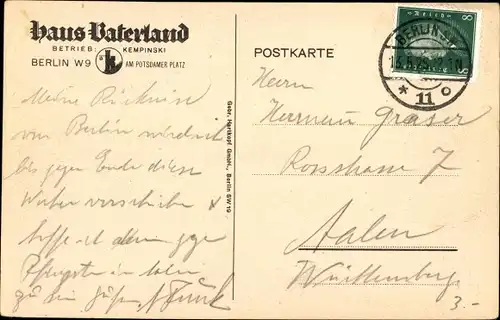 Haus Vaterland
BETRIEB: KEMPINSKI
BERLIN W9 k AM POTSDAMER PLATZ
POSTKARTE
8
BERLIN
* 11 o
Meine Rückreise
von Berlin wird sich
bis gegen Ende dieser
Woche verschieben
hoffe ich aber gegen
Pfingsten in Aalen
zu
Gebr. Hartkopf GmbH., Berlin SW 19
Herrn
Hermann Graser
Rossstrasse 7
Aalen
Württemberg
3.-